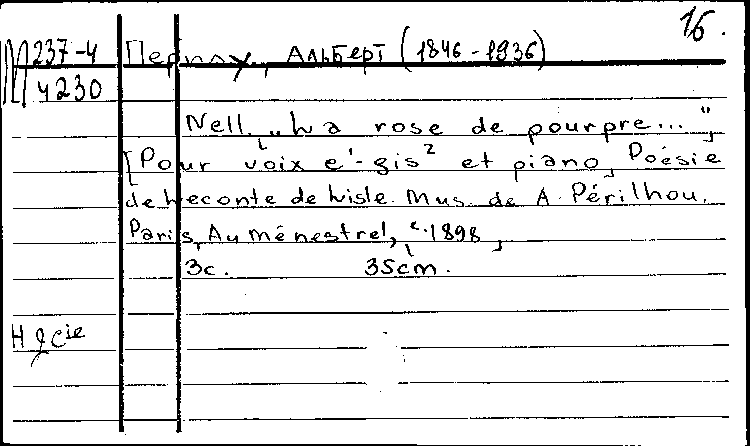 16.
М 237-4 Перилу, Альберт (1846-1936)
4230
Nell. „La rose de pourpre...",
[Pour voix e'-gis² et piano, Poésie
de Leconte de Lisle. Mus. de A. Périlhou.
Paris, Au ménestrel, c. 1898,
3c. 35cm.
H & Cie